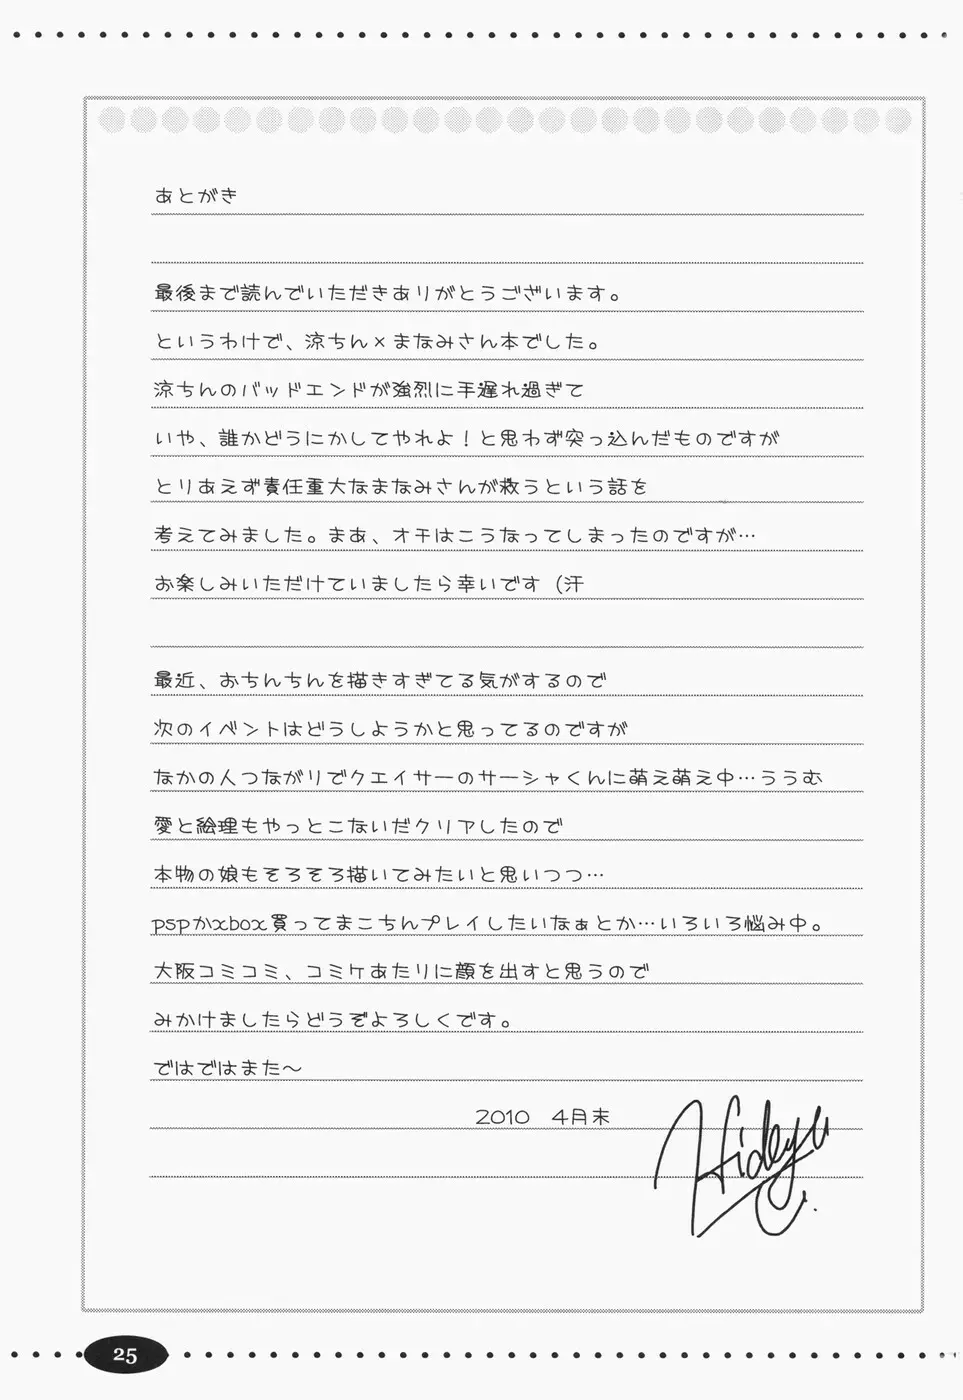 あとがき
最後まで読んでいただきありがとうございます。
というわけで、涼ちん×まなみさん本でした。
涼ちんのバッドエンドが強烈に手遅れ過ぎて
いや、誰かどうにかしてやれよ!と思わず突っ込んだものですが
とりあえず責任重大なまなみさんが救うという話を
考えてみました。まあ、オチはこうなってしまったのですが…
お楽しみいただけていましたら幸いです(汗
最近、おちんちんを描きすぎてる気がするので
次のイベントはどうしようかと思ってるのですが
なかの人つながりでクエイサーのサーシャくんに萌え萌え中…ううむ
愛と絵理もやっとこないだクリアしたので
本物の娘もそろそろ描いてみたいと思いつつ…
pspかxbox買ってまこちんプレイしたいなぁとか…いろいろ悩み中。
大阪コミコミ、コミケあたりに顔を出すと思うので
みかけましたらどうぞよろしくです。
ではではまた〜
2010 4月末
Hideyu
25